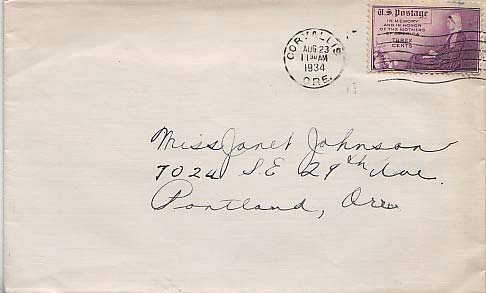 U.S. Postage
IN MEMORY
AND IN HONOR
OF THE MOTHERS
OF AMERICA
THREE
CENTS
CORVALLIS
AUG 23
11 30 AM
1934
ORE.
Miss Janet Johnson
7024 S.E 29th Ave.
Portland, Ore